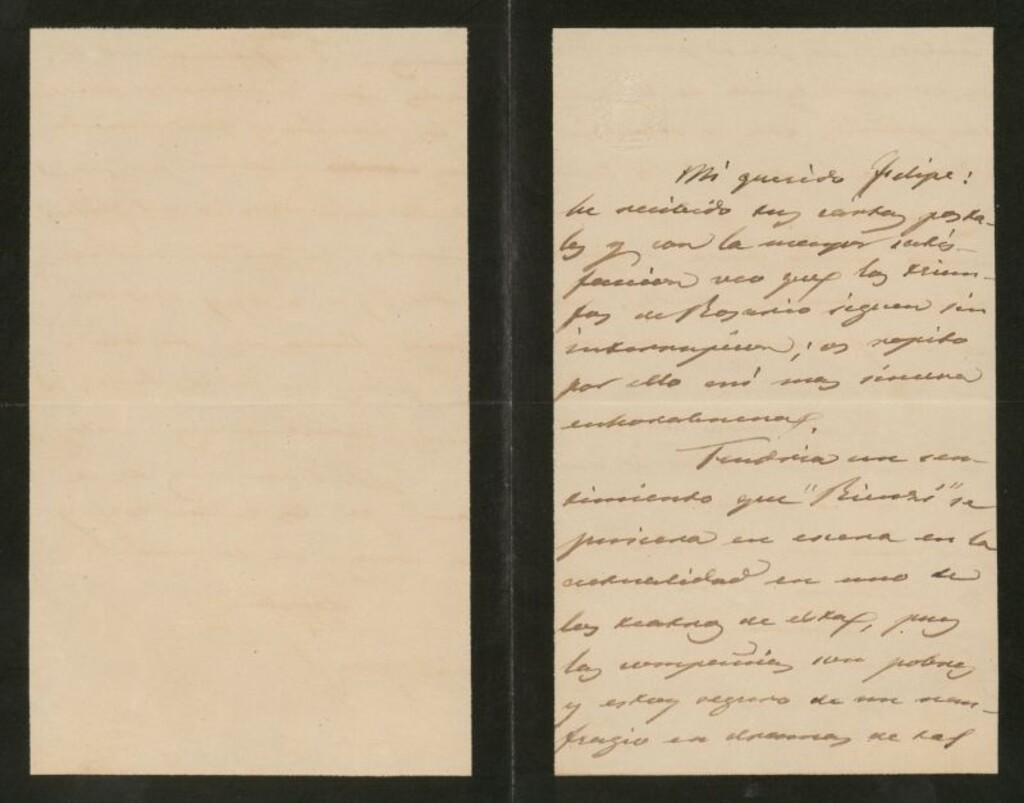 Mi querido Felipe:
he recibido tus cartas posta-
les y con la mayor satis-
facción veo que los triun-
fos de Rosario siguen sin
interrupcion; os repito
por ello mi mas sincera
enhorabuena.
Tendria un sen-
timiento que "Rienzi" se
pusiera en escena en la
actualidad en uno de
los teatros de esta, pues
las compañias son pobres
y estoy seguro de un nau-
fragio en dramas de tal